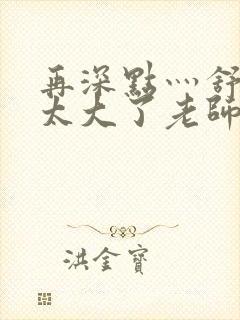 再深點灬舒
太大了老師
洪金寶